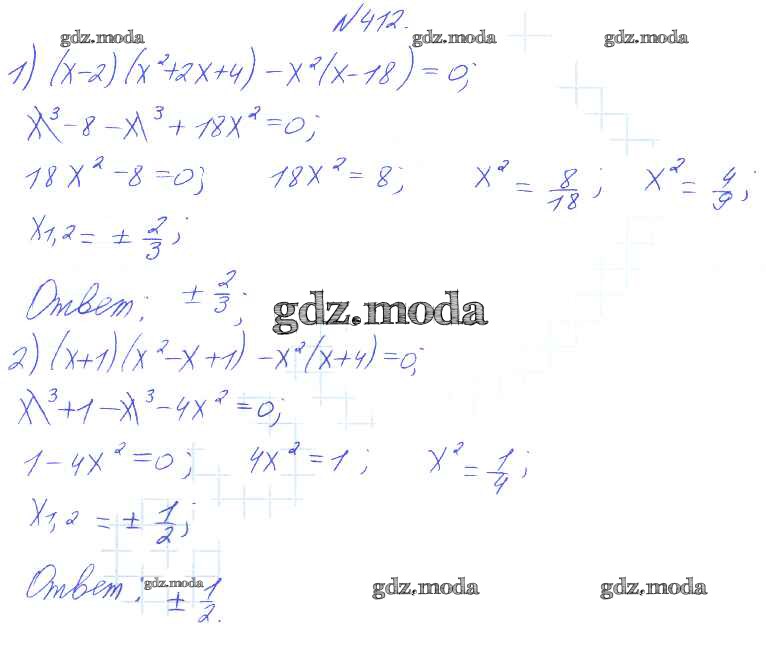 №412.
gdz.moda gdz.moda gdz.moda
1) (x-2)(x²+2x+4) -x²(x-18)=0;
x³-8-x³+18x²=0;
18x²-8=0; 18x²=8; x²=8/18; x²=4/9;
x1,2=±2/3;
Ответ: ±2/3;
gdz.moda
2) (x+1)(x²-x+1) -x²(x+4)=0;
x³+1-x³-4x²=0;
1-4x²=0; 4x²=1; x²=1/4;
x1,2=±1/2;
Ответ: ±1/2.
gdz.moda gdz.moda gdz.moda